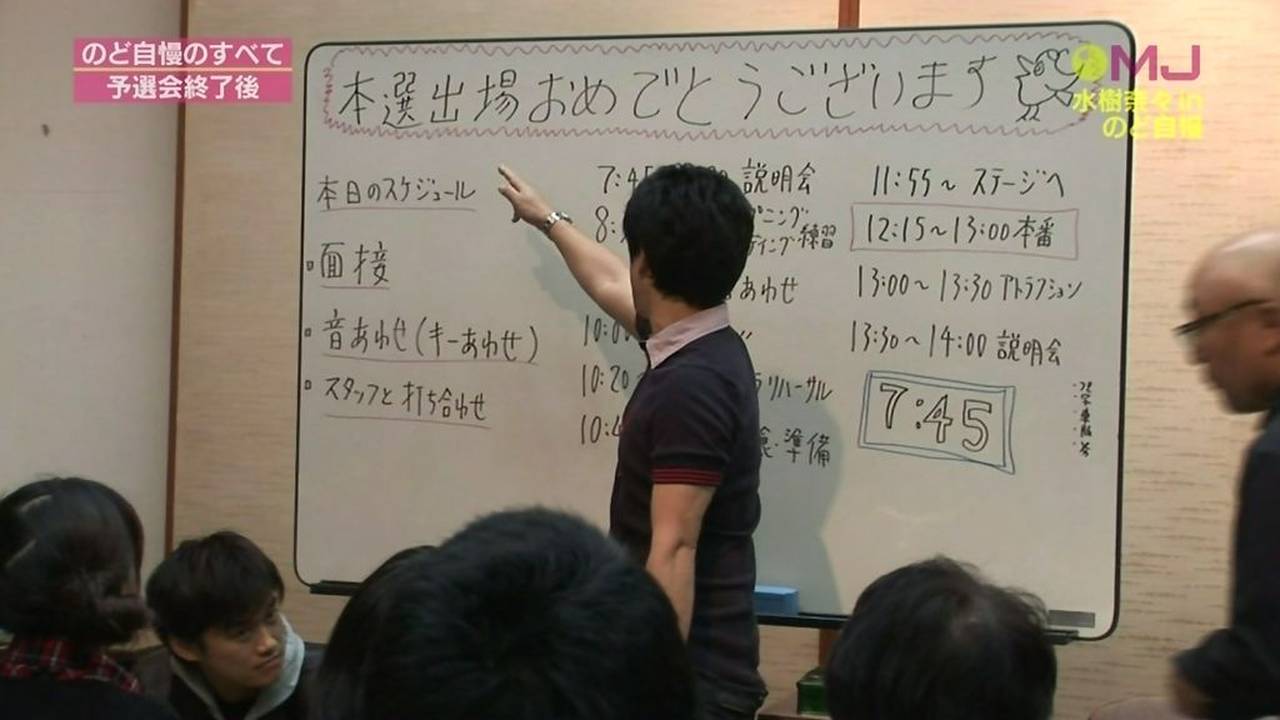 のど自慢のすべて
予選会終了後
MJ
水樹奈々 in
のど自慢
本選出場おめでとうございます
本日のスケジュール
面接
音あわせ(キーあわせ)
スタッフと打ち合わせ
7:45
説明会
8:
ニング
ティング練習
あわせ
10:00
〃
10:20
リハーサル
10:4
準備
11:55～ ステージへ
12:15～13:00 本番
13:00～13:30 アトラクション
13:30～14:00 説明会
7:45